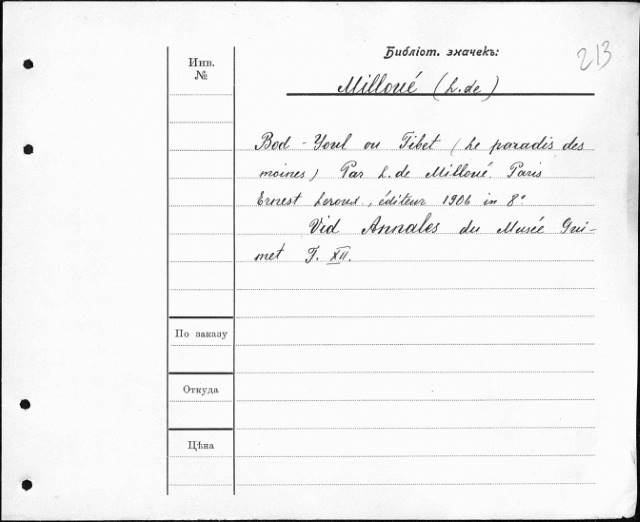 Библіот. значекъ:
213
Инв.
№
Milloué (L. de)
Bod-Youl ou Tibet (Le paradis des
moines) Par L. de Milloué. Paris
Ernest Leroux, éditeur 1906 in 8°
Vid Annales du Musée Gui-
met T. XII.
По заказу
Откуда
Цѣна